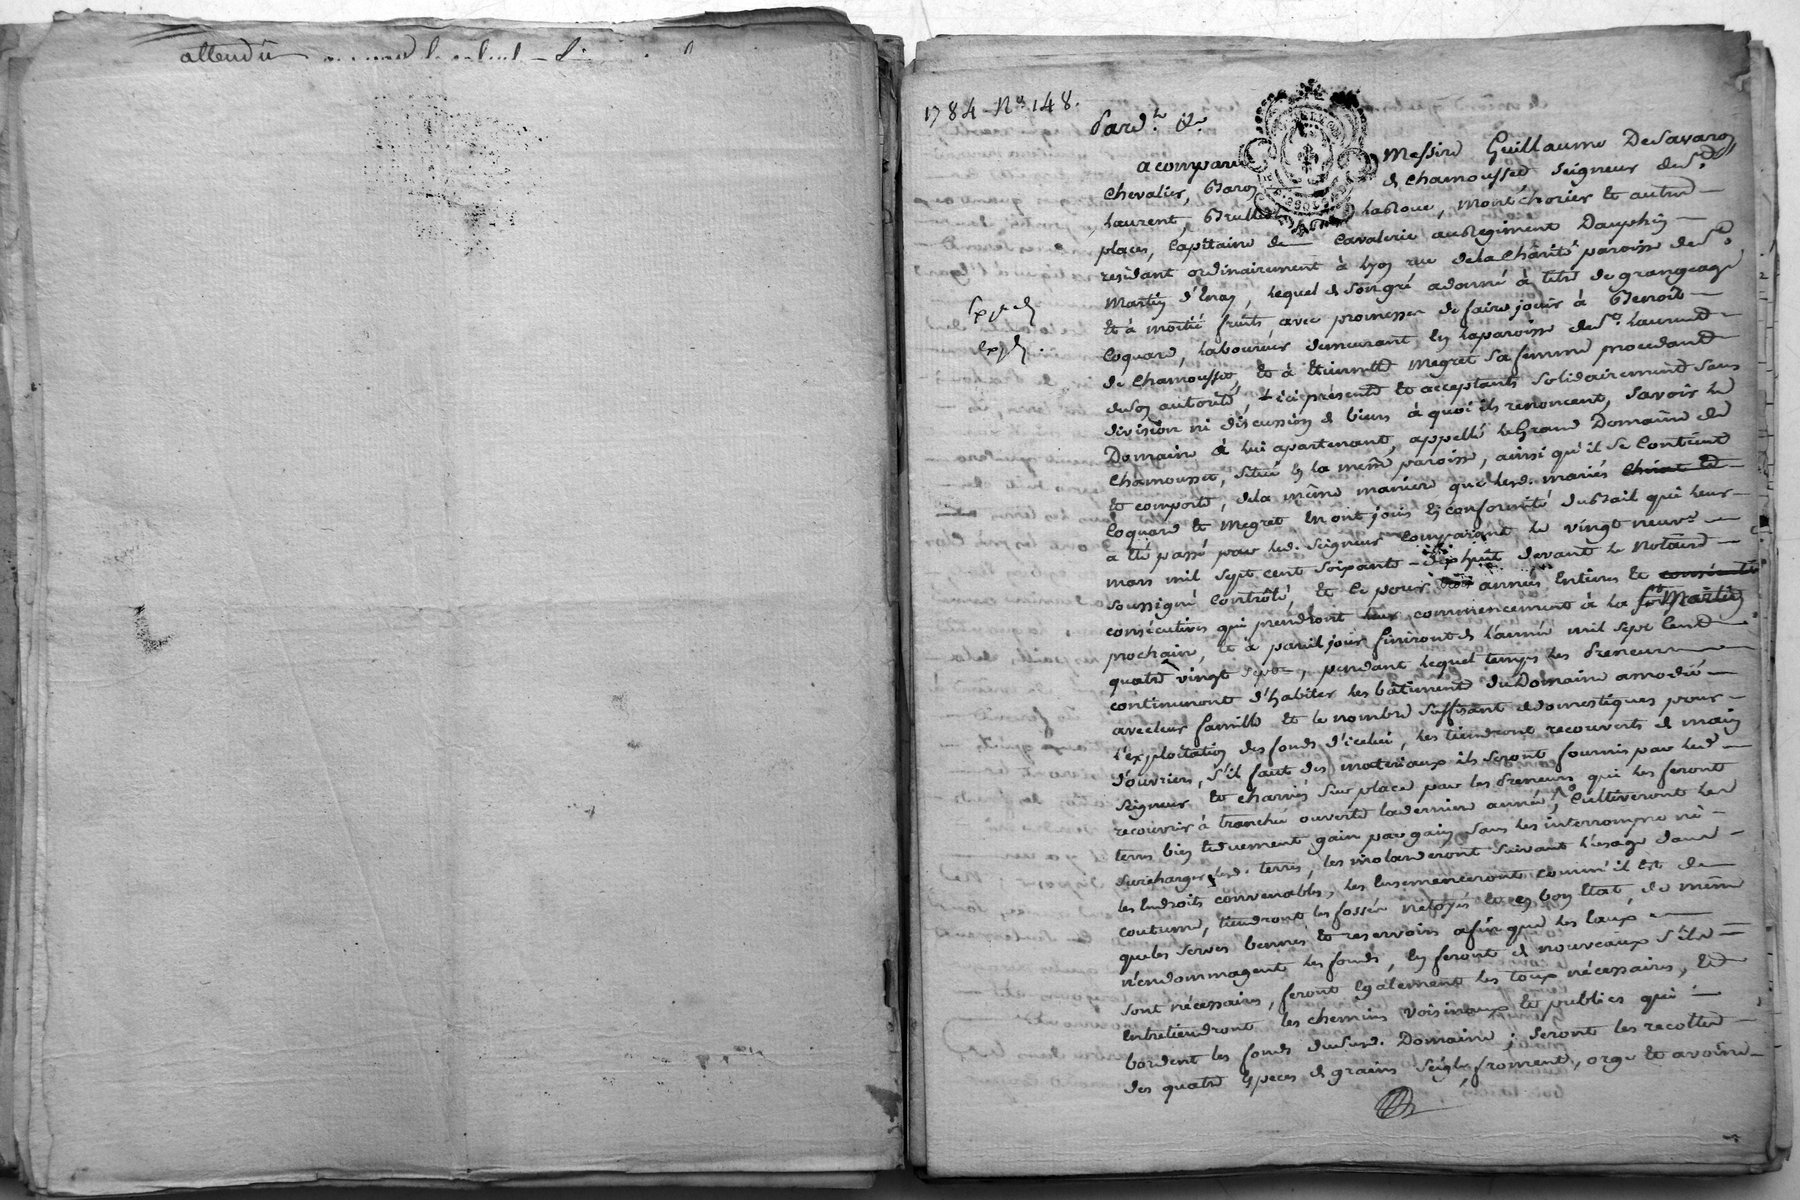 attendu
1784 - No. 148.
Pard.t &c.
a comparu Messire Guillaume De Savaron
Chevalier, Baron de Chamousset Seigneur de St.
Laurent, Brullioles, la Roue, Montchorier et autres
places, Capitaine de Cavalerie au Regiment Dauphin
residant ordinairement à Lyon rue de la Charité paroisse de St.
Martin d'Enay, lequel de son gré a donné à titre de grangeage
et à moitié fruits, avec promesse de faire jouir à Benoit
Coquard, Laboureur demeurant en la paroisse de St. Laurent
de Chamousset, et à Etiennette Megret sa femme procedante
de son autorité, ici présents et acceptants solidairement sans
division ni discussion de biens à quoi ils renoncent, savoir le
Domaine à lui apartenant, appellé le Grand Domaine de
Chamousset, situé en la même paroisse, ainsi qu'il se contient
et comporte, de la même maniere que lesd. mariés
Coquard et Megret en ont joui en conformité du bail qui leur
a été passé par led. Seigneur comparant le vingt neuf
mars mil sept cent soixante-dixhuit devant le Notaire
soussigné Controlé, et ce pour trois années entieres et
consécutives qui prendront leur commencement à la St Martin
prochain, et à pareil jour finiront de l'année mil sept cent
quatre vingt sept, pendant lequel temps les preneurs
continueront d'habiter les bâtiments du Domaine amodié
avec leur famille et le nombre suffisant de domestiques pour
l'exploitation des fonds d'icelui, les tiendront recouverts de main
d'ouvriers, s'il faut des materiaux ils seront fournis par led.
Seigneur et charriés sur place par les preneurs qui les feront
recouvrir à tranche ouverte la derniere année, Cultiveront les
terres bien et duement gain par gain sans les interrompre ni
surcharger lesd. terres, les suivant l'usage dans
les endroits convenables, les ensemenceront comm'il est de
coutume, tiendront les fossés netoyés et en bon état de même
que les serves bennes et reservoirs afin que les eaux
n'endommagent les fonds, en feront de nouveaux s'ils
sont nécessaires, feront également les nécessaires, et
entretiendront les chemins voisinaux et publics qui
bordent les fonds dudusd. Domaine; seront les recoltes
des quatre especes de grains seigle, froment, orge et avoine